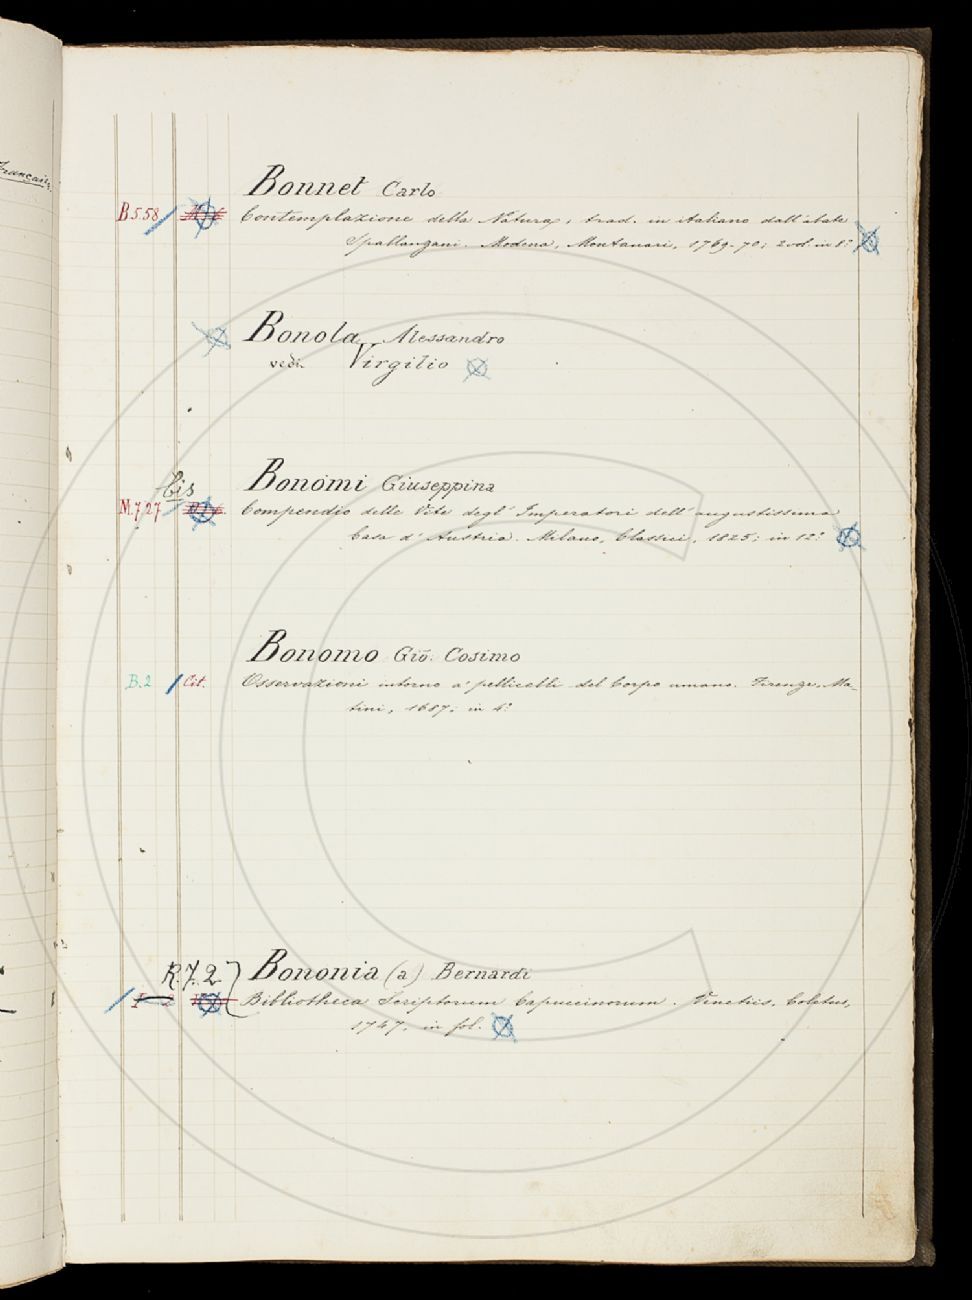 Française
Bonnet Carlo
B.5.58
Contemplazione della Natura, trad. in italiano dall'abate
Spallanzani. Modena, Montanari, 1769-70; 2 vol. in 8°
Bonola Alessandro
vedi. Virgilio
Bonomi Giuseppina
bis
M.7.27
Compendio delle Vite degl' Imperatori dell' augustissima
Casa d' Austria. Milano, Classici, 1825; in 12°
Bonomo Gio. Cosimo
B.2 Cit.
Osservazioni intorno a' pellicelli del Corpo umano. Firenze, Ma-
tini, 1687; in 4°
R.7.2
Bononia (a) Bernardi
Bibliotheca Scriptorum Capuccinorum. Venetiis, Coletus,
1747. in fol.